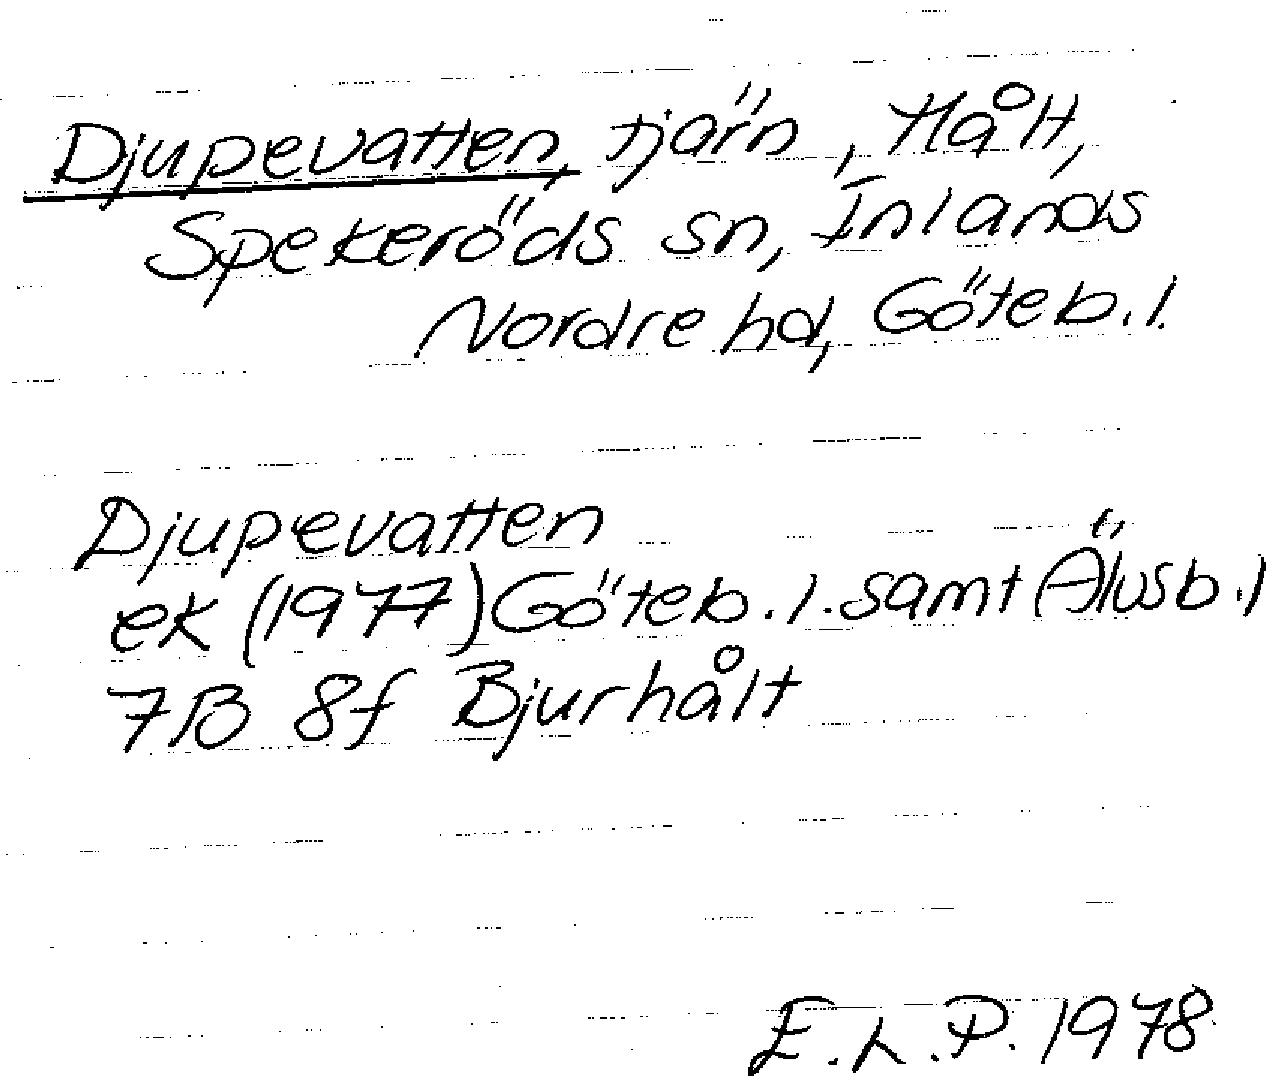 Djupevatten, tjärn, Hålt,
Spekeröds sn, Inlands
Nordre hd, Göteb. l.
Djupevatten
ek (1977) Göteb. l. samt Älvsb. l
7B 8f Bjurhålt
E. L. P. 1978